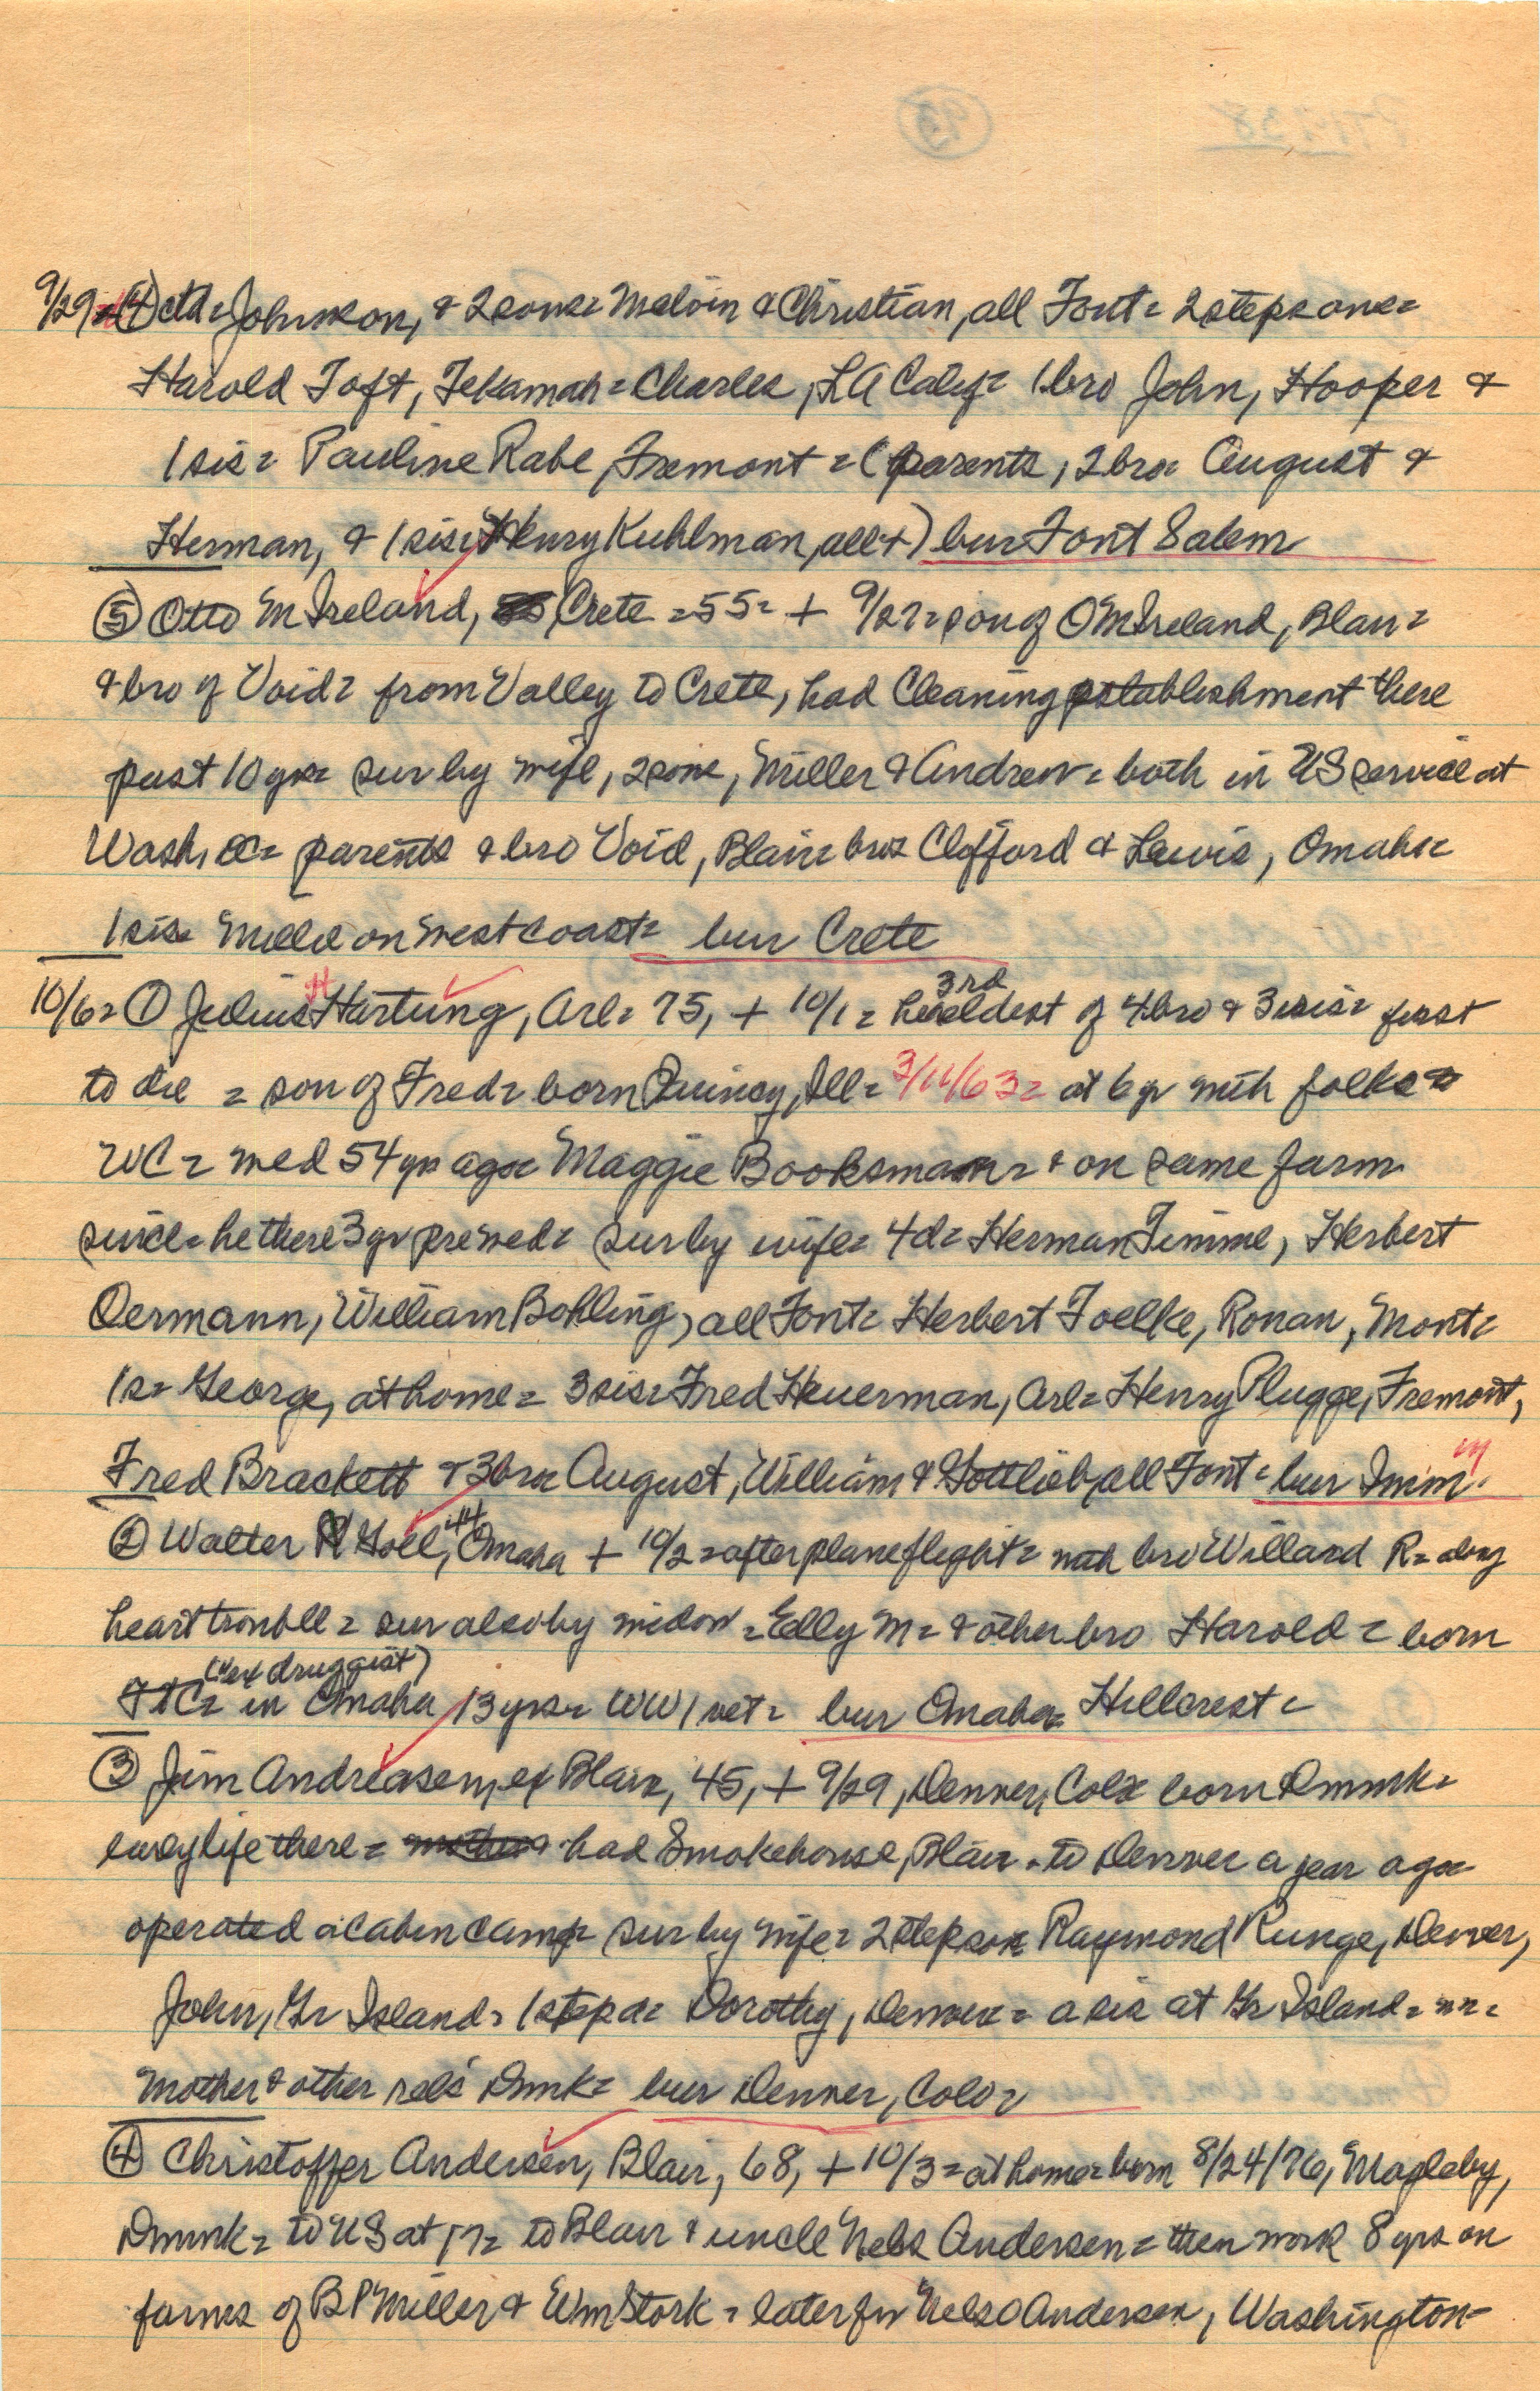 9/29= (4) ctd= Johnson, & 2 sons= Melvin & Christian, all Font= 2 stepsons=
Harold Toft, Tekamah= Charles, LA Calif= 1 bro John, Hooper &
1 sis= Pauline Rabe, Fremont = (parents, 2 bro= August &
Herman, & 1 sis= Henry Kuhlman, all +) bur Font Salem
(5) Otto M Ireland, Crete = 55= + 9/27= son of OM Ireland, Blair=
& bro of Void= from Valley to Crete, had Cleaning establishment there
past 10 yrs= sur by wife, 2 sons, Miller & Andrew= both in US service at
Wash, DC= parents & bro Void, Blair= bros Clifford & Lewis, Omaha=
1 sis= on west coast= bur Crete
10/6= (1) Julius H Hartung, Arl= 75, + 10/1= he 3rd eldest of 4 bro & 3 sis= first
to die = son of Fred= born Quincy, Ill= 3/11/63= at 6 yr with folks=
WC= wed 54 yrs ago= Maggie Booksman= & on same farm
since= he there 3 yr pre wed= sur by wife= 4d= Herman Timme, Herbert
Oermann, William Bohling, all Font= Herbert Foelke, Ronan, Mont=
1s= George, at home= 3 sis= Fred Heuerman, Arl= Henry Plugge, Fremont,
Fred Brackett & 3 bro= August, William & Gottlieb, all Font= bur Imm
(2) Walter R Goll, 44, Omaha + 10/2= after plane flight= with bro Willard R= along
heart trouble = sur also by widow= Edly M= & other bro Harold = born
FTC= (ex druggist) in Omaha 13 yrs= WW1 vet= bur Omaha= Hillcrest=
(3) Jim Andreasen, ex Blair, 45, + 9/29, Denver, Colo= born Dnmrk=
early life there= had Smokehouse, Blair= to Denver a year ago=
operated a cabin camp= sur by wife= 2 stepson= Raymond Runge, Denver,
John, Gr Island= 1 step d= Dorothy, Denver= a sis at Gr Island= nn=
Mother & other rels Dnmk= bur Denver, Colo=
(4) Christoffer Andersen, Blair, 68, + 10/3= at home= born 8/24/76, Magleby,
Dnmrk= to US at 17= to Blair & uncle Nels Andersen= then work 8 yrs on
farms of BP Miller & Wm Stork= later for Nels O Andersen, Washington=